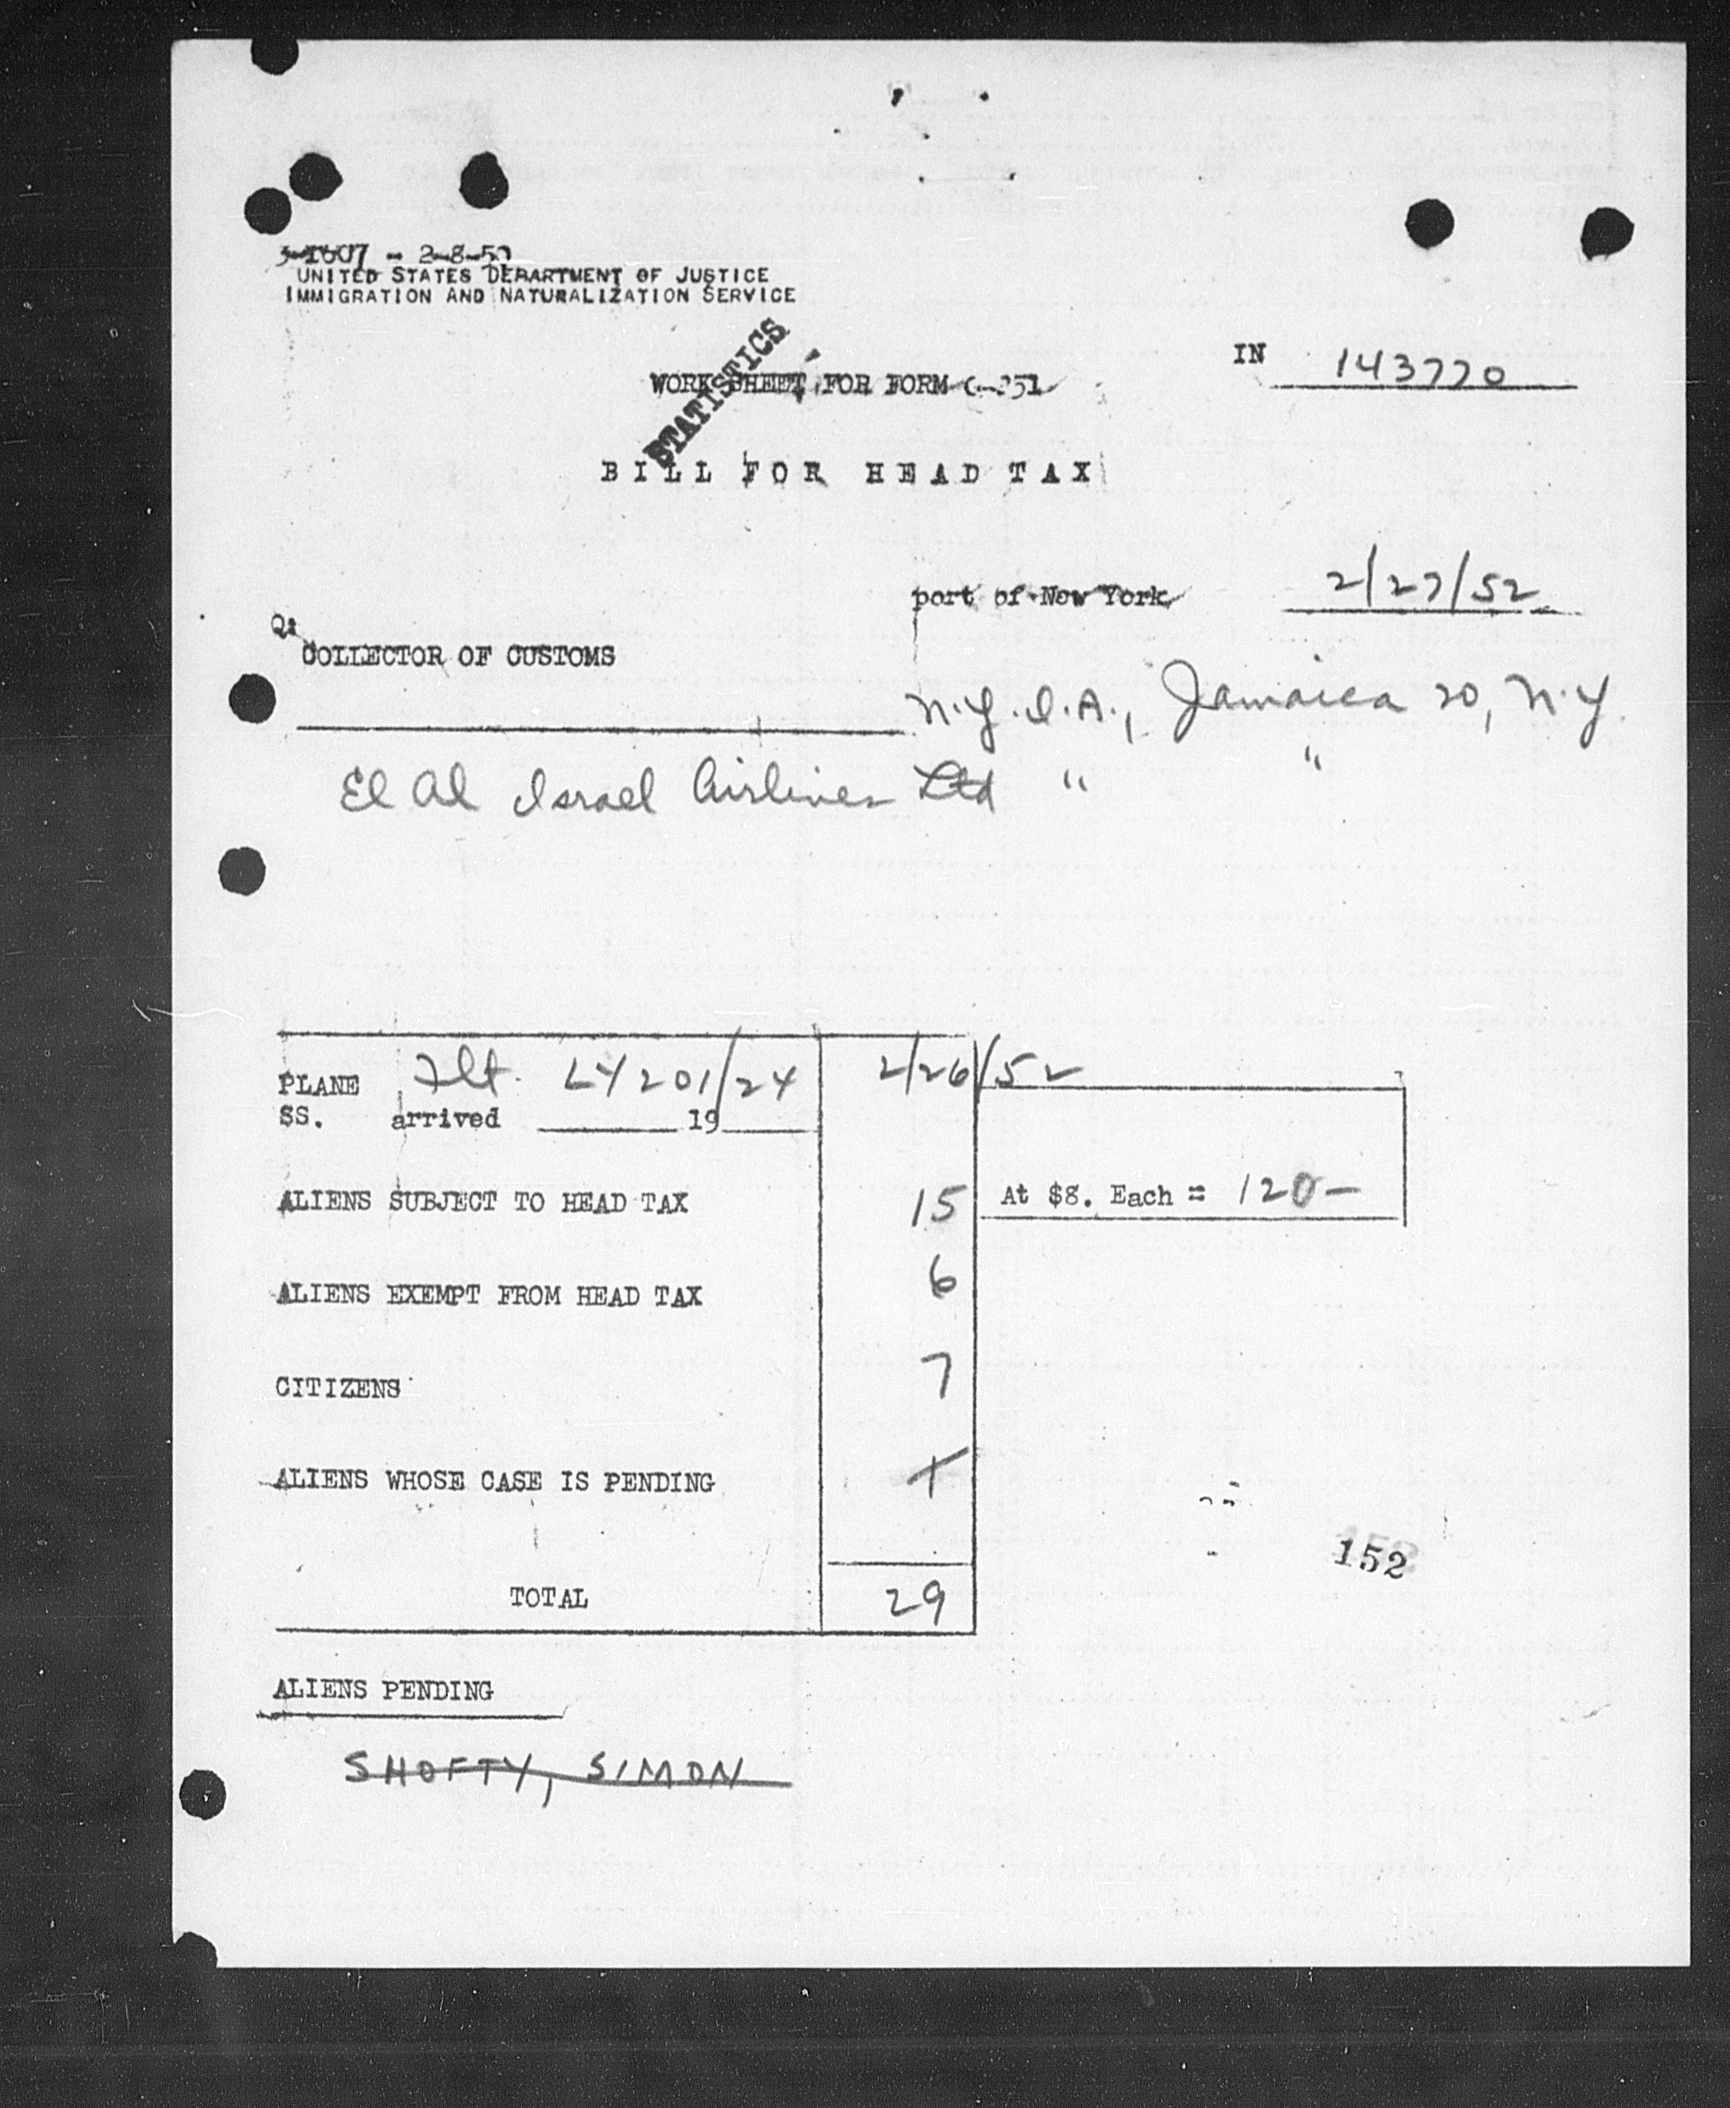 3-1607 - 2-8-50
UNITED STATES DEPARTMENT OF JUSTICE
IMMIGRATION AND NATURALIZATION SERVICE
STATISTICS
IN 143770
WORK SHEET FOR FORM
BILL FOR HEAD TAX
port of New York 2/27/52
COLLECTOR OF CUSTOMS
N.Y.I.A., Jamaica 20, N.Y.
El Al Israel Airlines Ltd " "
PLANE Flt. LY201/24 2/26/52
SS. arrived 19
ALIENS SUBJECT TO HEAD TAX 15 At $8. Each = 120-
ALIENS EXEMPT FROM HEAD TAX 6
CITIZENS 7
ALIENS WHOSE CASE IS PENDING
152
TOTAL 29
ALIENS PENDING
SHOFTY, SIMON